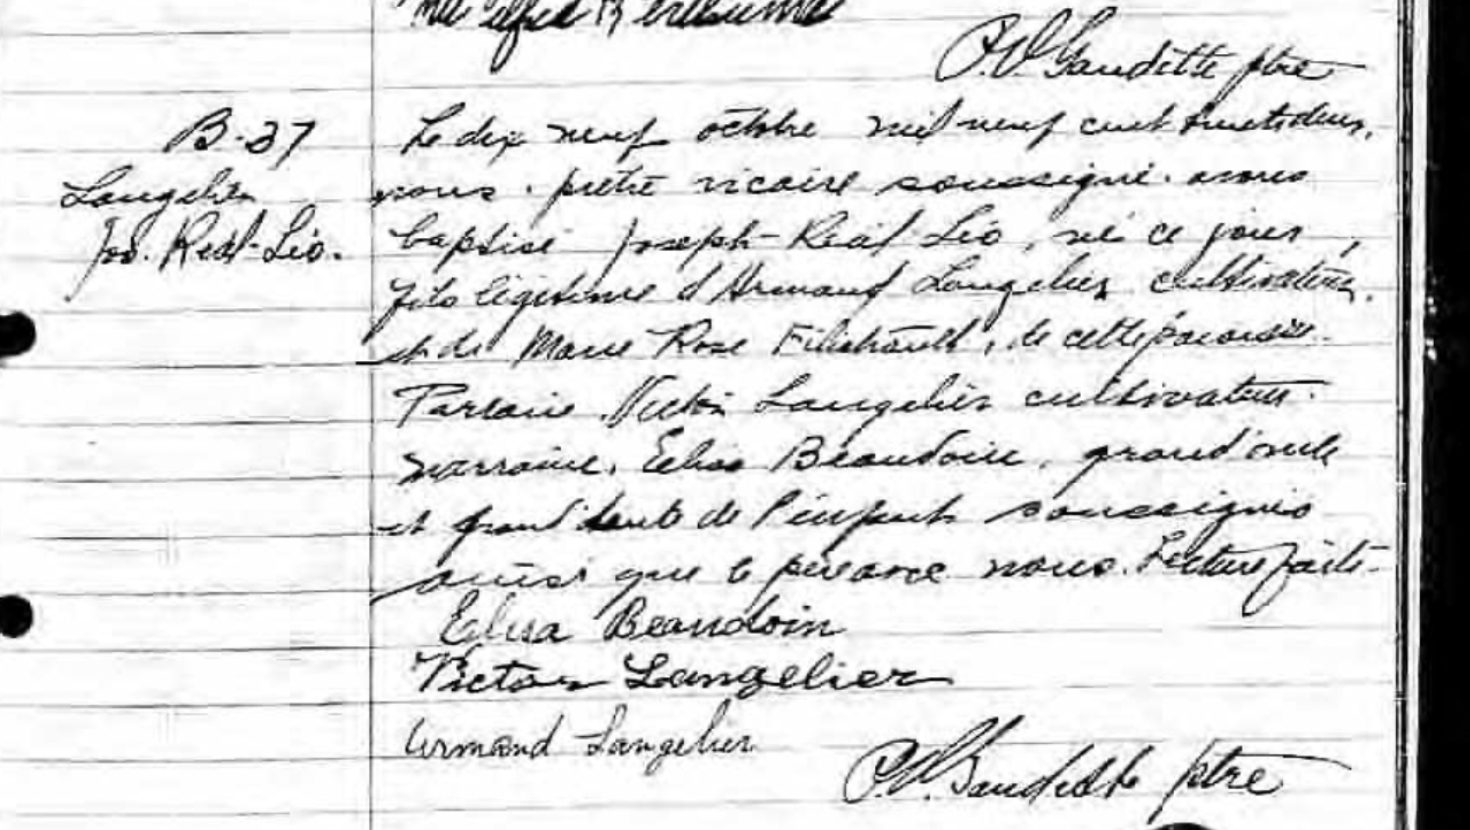 P.V. Gaudette ptre
B-37
Langelier
Jos. Réal-Léo.
Le dix neuf octobre mil neuf cent trente deux,
nous, prêtre vicaire soussigné, avons
baptisé Joseph-Réal-Léo, né ce jour,
fils légitime d'Armand Langelier cultivateur,
et de Marie Rose Filiatrault, de cette paroisse.
Parrain Victor Langelier cultivateur.
marraine, Eglisa Beaudoin, grand'oncle
et grand'tante de l'enfant soussignés
ainsi que le père avec nous. Lecture faite.
Eglisa Beaudoin
Victor Langelier
Armand Langelier
P.V. Gaudette ptre